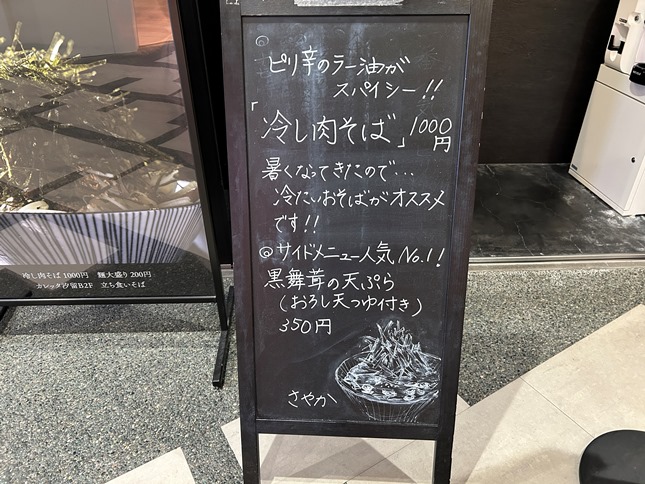 ◎
ピリ辛のラー油が
スパイシー!!
「冷し肉そば」1000円
暑くなってきたので…
冷たいおそばがオススメ
です!!
◎サイドメニュー人気No.1!
黒舞茸の天ぷら
(おろし天つゆ付き)
350円
さやか
冷し肉そば 1000円 麺大盛り 200円
カレッタ汐留B2F 立ち食いそば